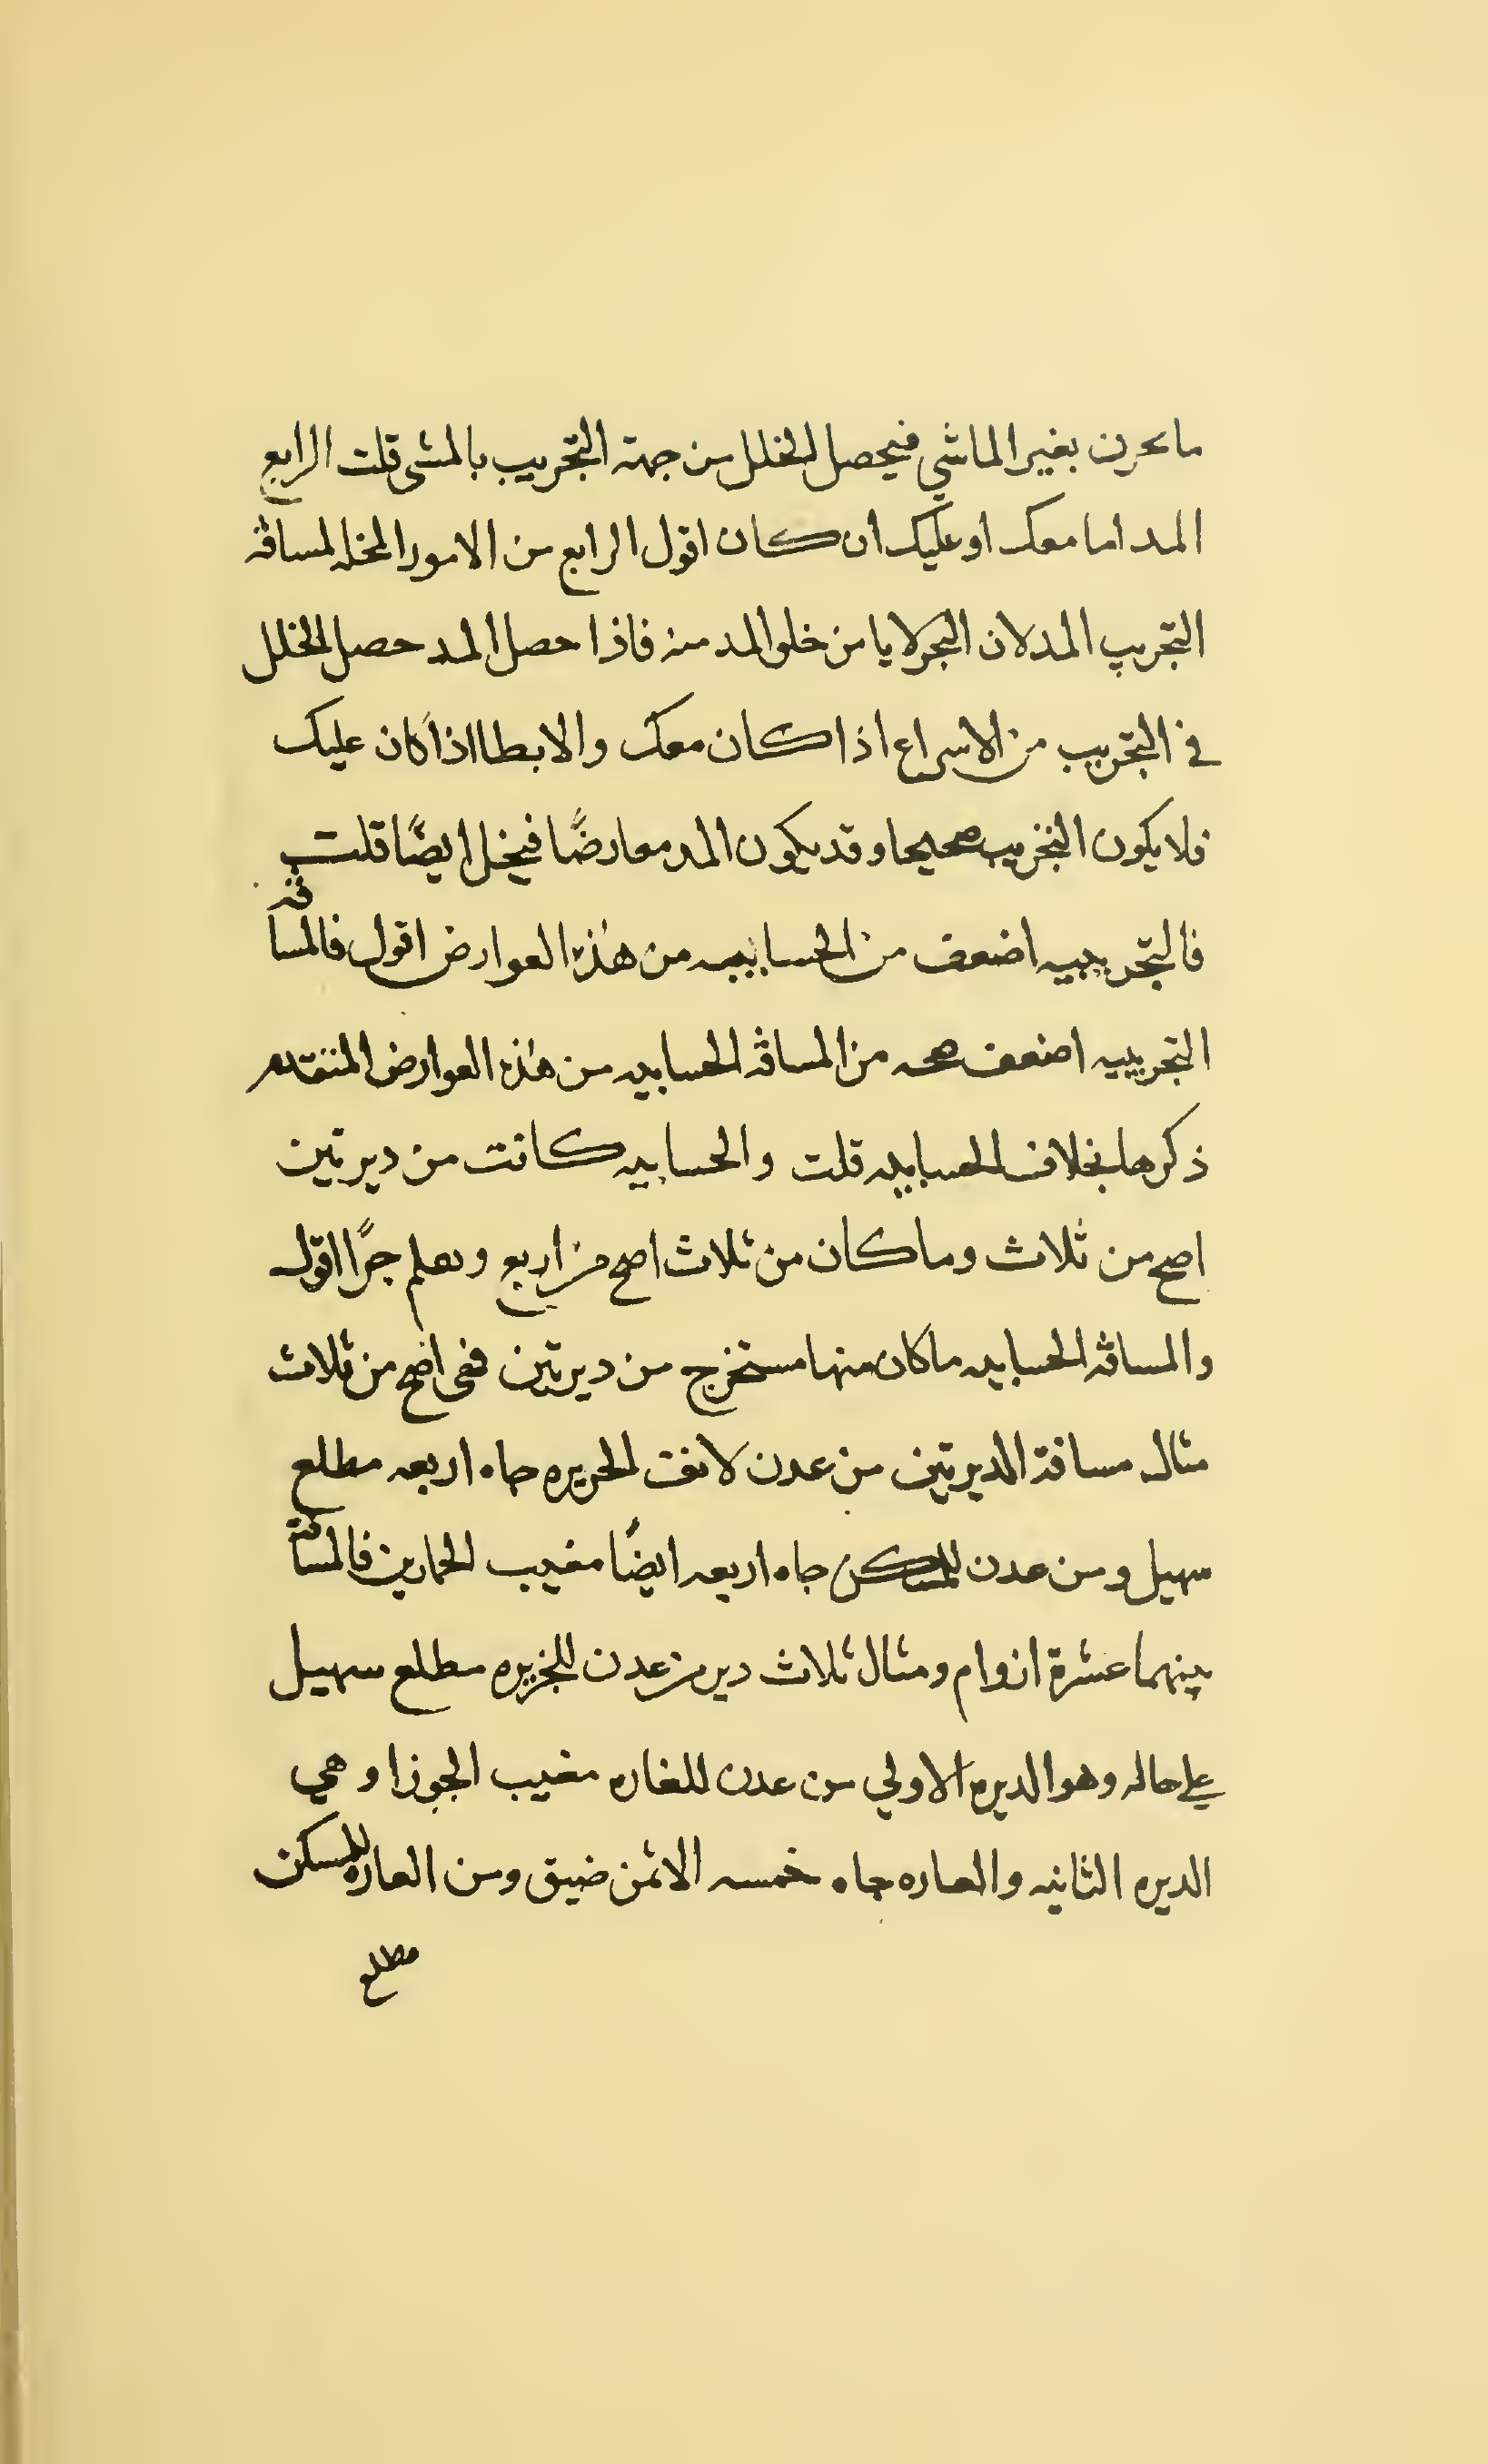 ما يحرن بغير الماشي فيحصل الخلل من جهة التجريب بالمشي قلت الرابع
المد اما معك او عليك ان كان اقول الرابع من الامور المخله لمسافة
التجريب المد لان البحر لا يامن خلو المد منه فاذا حصل المد حصل الخلل
في التجريب من الاسراع اذا كان معك والابطا اذا كان عليك
فلا يكون التجريب صحيحا وقد يكون المد معارضًا فيخل ايضًا قلت
فالتجريبيه اضعف من الحسابيه من هذه العوارض اقول فالمسافة
التجريبيه اضعف صحه من المسافة الحسابيه من هذه العوارض المتقدم
ذكرها بخلاف الحسابيه قلت والحسابيه كانت من ديرتين
اصح من ثلاث وما كان من ثلاث اصح من اربع وهلم جرًا اقول
والمسافة الحسابيه ما كان منها مستخرج من ديرتين فهي اصح من ثلاث
مثال مسافة الديرتين من عدن لانف الجزيره جاه اربعه مطلع
سهيل ومن عدن للمسكن جاه اربعه ايضًا مغيب الحمارين فالمسافة
بينهما عشرة ازوام ومثال ثلاث دير من عدن للجزيره مطلع سهيل
علي حاله وهو الديره الاولي من عدن للغاره مغيب الجوزا وهي
الديره الثانيه والعاره جاه خمسه الا ثمن ضيق ومن العاره للمسكن
مطلع